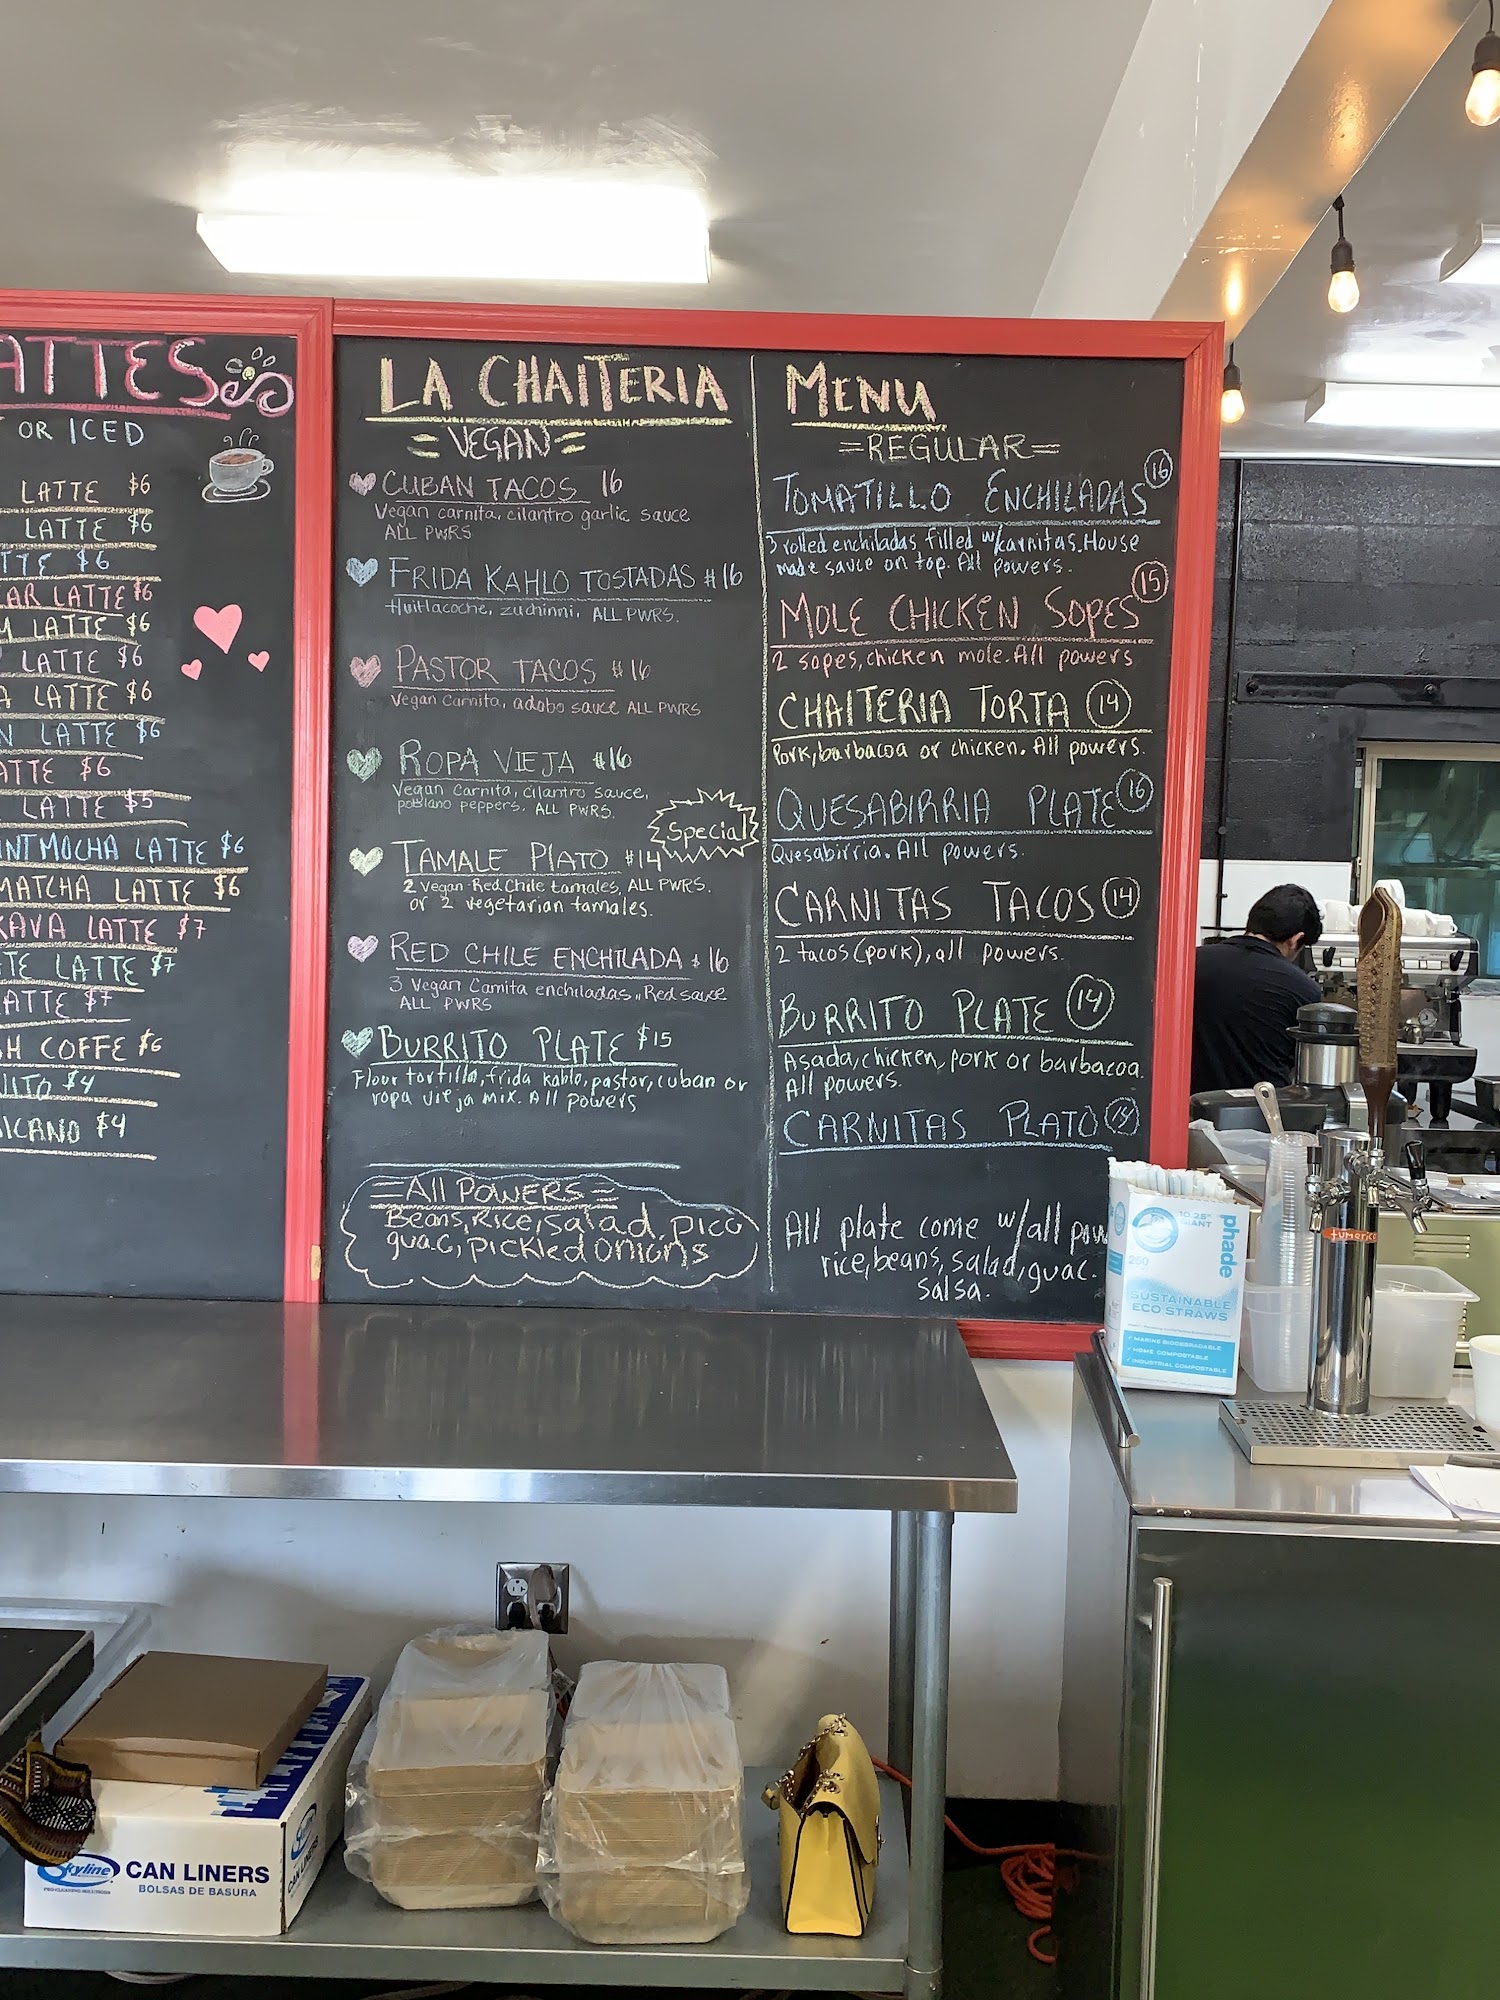 ATTES
OR ICED
LATTE $6
LATTE $6
TTE $6
EAR LATTE $6
M LATTE $6
LATTE $6
A LATTE $6
N LATTE $6
ATTE $6
LATTE $5
INT MOCHA LATTE $6
MATCHA LATTE $6
KAVA LATTE $7
TE LATTE $7
ATTE $7
H COFFE $6
ITO $4
RICANO $4
LA CHAITERIA
=VEGAN=
CUBAN TACOS 16
Vegan carnita, cilantro garlic sauce
ALL PWRS
FRIDA KAHLO TOSTADAS $16
Huitlacoche, zuchinni, ALL PWRS.
PASTOR TACOS $16
Vegan Carnita, adobo sauce ALL PWRS
ROPA VIEJA $16
Vegan Carnita, cilantro sauce,
poblano peppers. ALL PWRS.
Special
TAMALE PLATO $14
2 Vegan Red Chile tamales, ALL PWRS.
or 2 vegetarian tamales.
RED CHILE ENCHILADA $16
3 Vegan Carnita enchiladas, Red sauce
ALL PWRS
BURRITO PLATE $15
Flour tortilla, frida kahlo, pastor, cuban or
ropa vieja mix. All powers
=All POWERS=
Beans, Rice, salad, pico
guac, pickled onions
MENU
=REGULAR=
TOMATILLO ENCHILADAS 16
3 rolled enchiladas filled w/carnitas. House
made sauce on top. All powers.
MOLE CHICKEN SOPES 15
2 sopes, chicken mole. All powers
CHAITERIA TORTA 14
Pork, barbacoa or chicken. All powers.
QUESABIRRIA PLATE 16
Quesabirria. All powers.
CARNITAS TACOS 14
2 tacos (pork), all powers.
BURRITO PLATE 14
Asada, chicken, pork or barbacoa.
All powers.
CARNITAS PLATO
All plate come w/all pow
rice, beans, salad, guac.
salsa.
10.25"
GIANT
phade
250
SUSTAINABLE
ECO STRAWS
✓ MARINE BIODEGRADABLE
✓ HOME COMPOSTABLE
✓ INDUSTRIAL COMPOSTABLE
tumeric
Skyline
CAN LINERS
BOLSAS DE BASURA
CAN LINERS